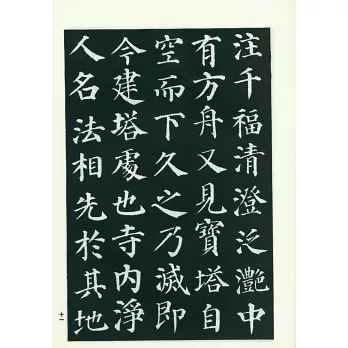 注千福清澄泛灩中
有方舟又見寶塔自
空而下久之乃滅即
今建塔處也寺内淨
人名法相先於其地
十一